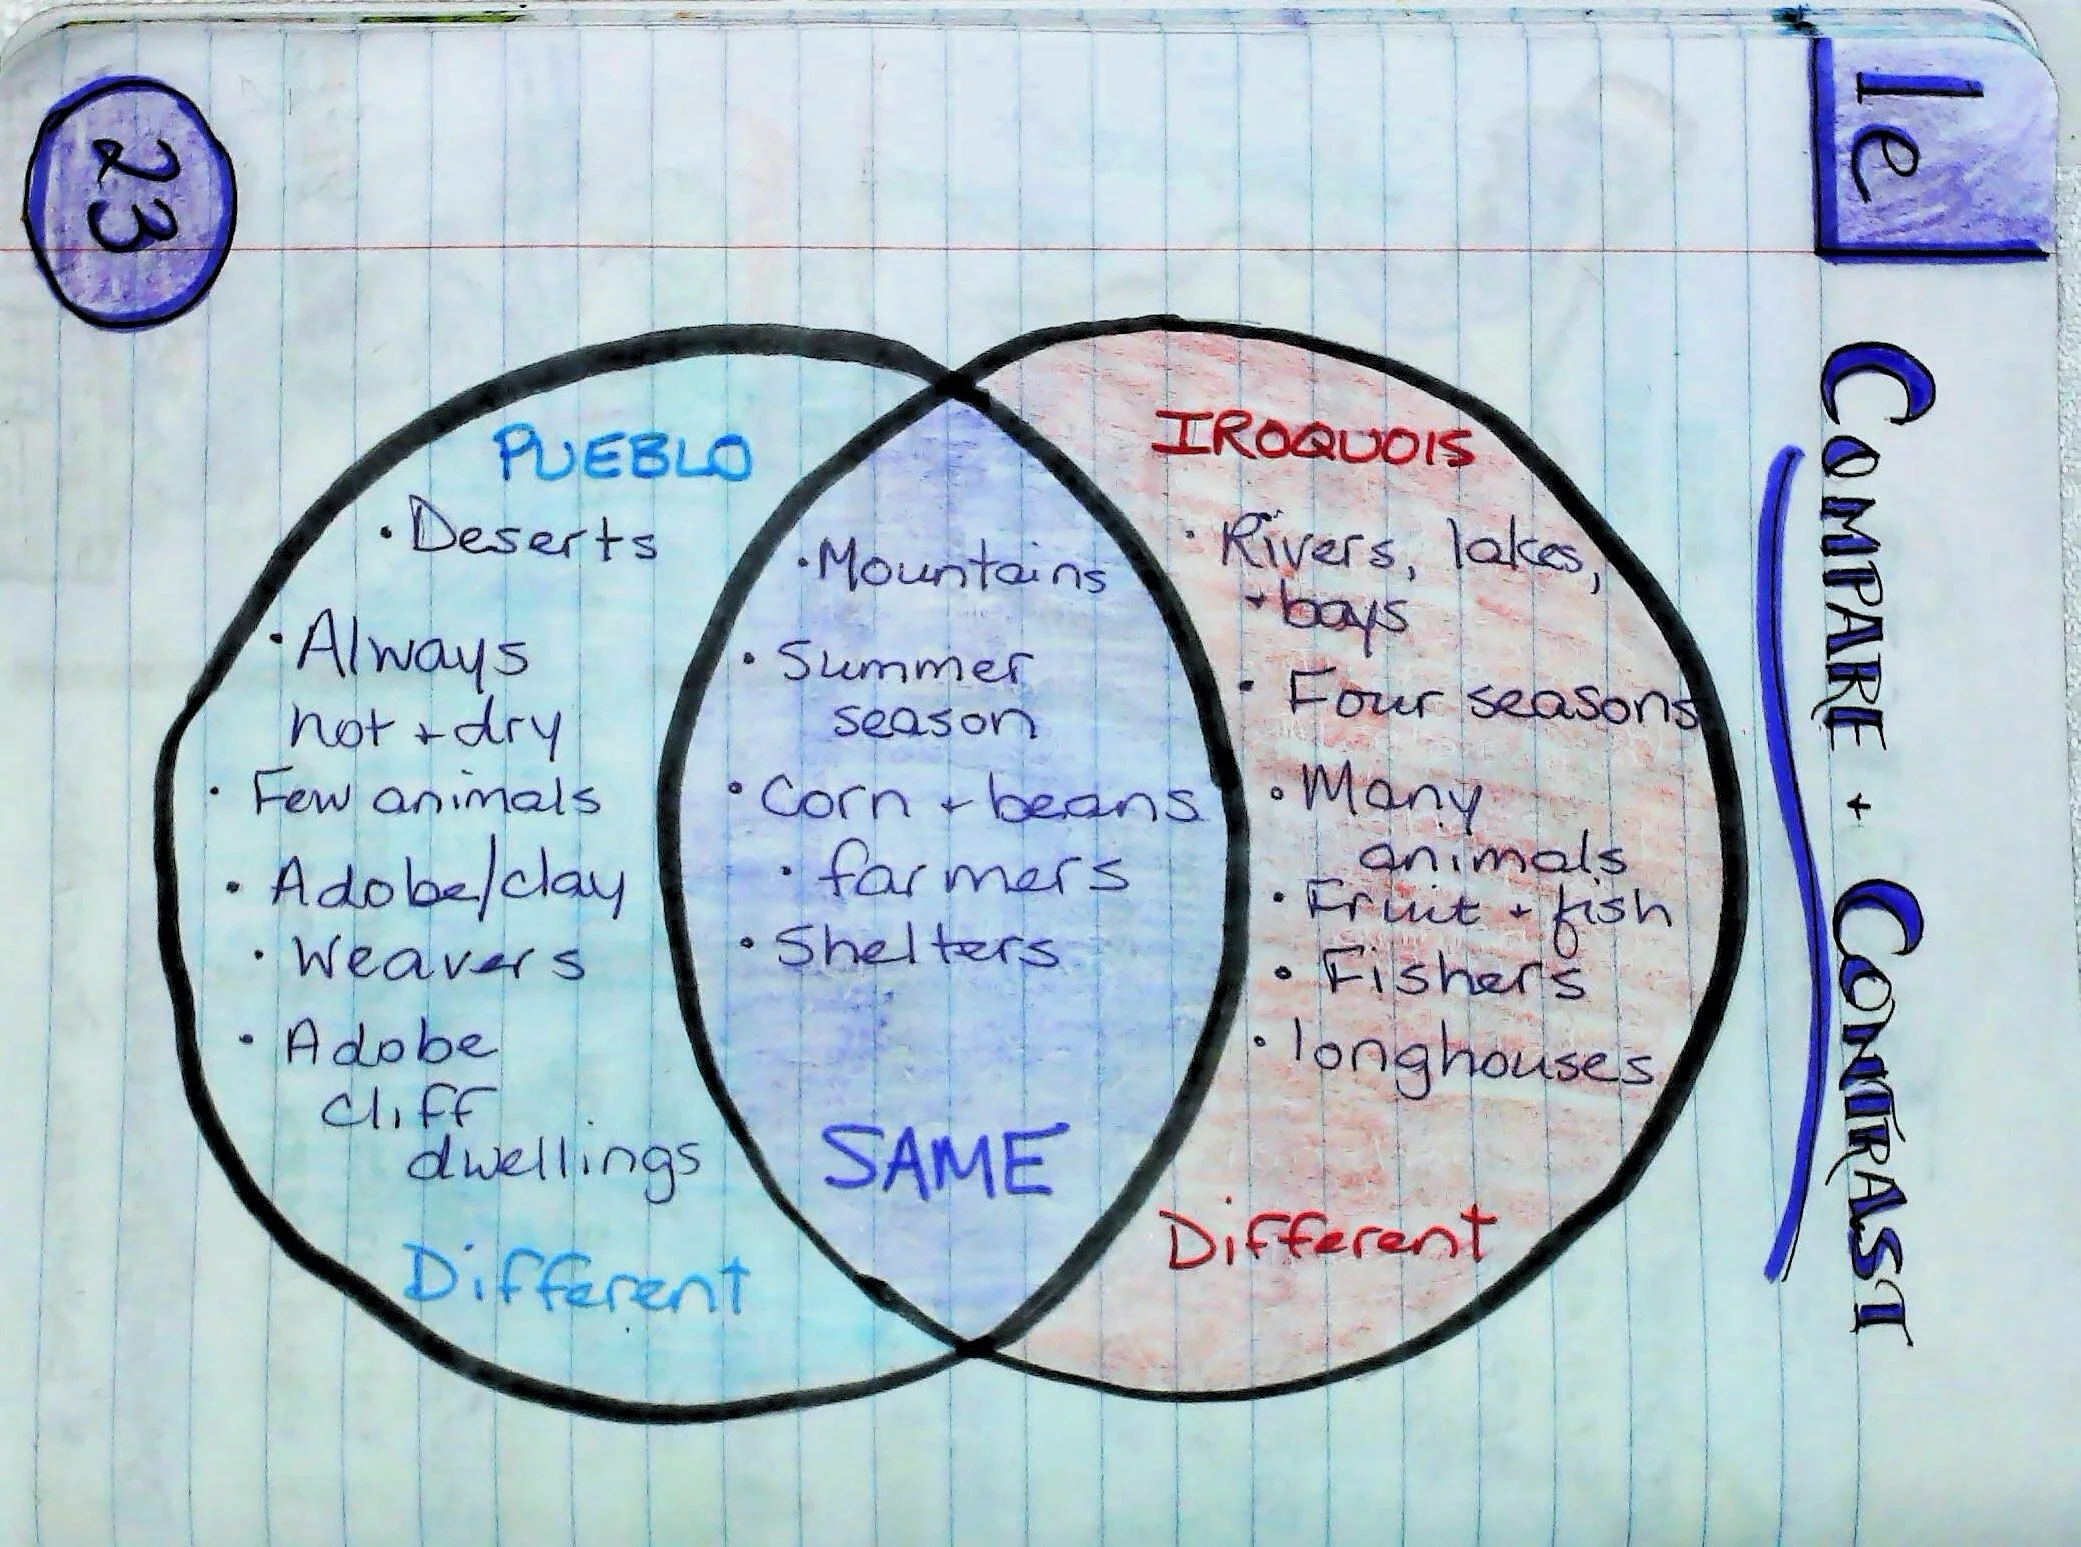 1e
23
COMPARE + CONTRAST
PUEBLO
• Deserts
• Always
hot + dry
• Few animals
• Adobe/clay
• Weavers
• Adobe
cliff
dwellings
Different
• Mountains
• Summer
season
• Corn + beans
• farmers
• Shelters
SAME
IROQUOIS
• Rivers, lakes,
+ bays
• Four seasons
• Many
animals
• Fruit + fish
• Fishers
• longhouses
Different